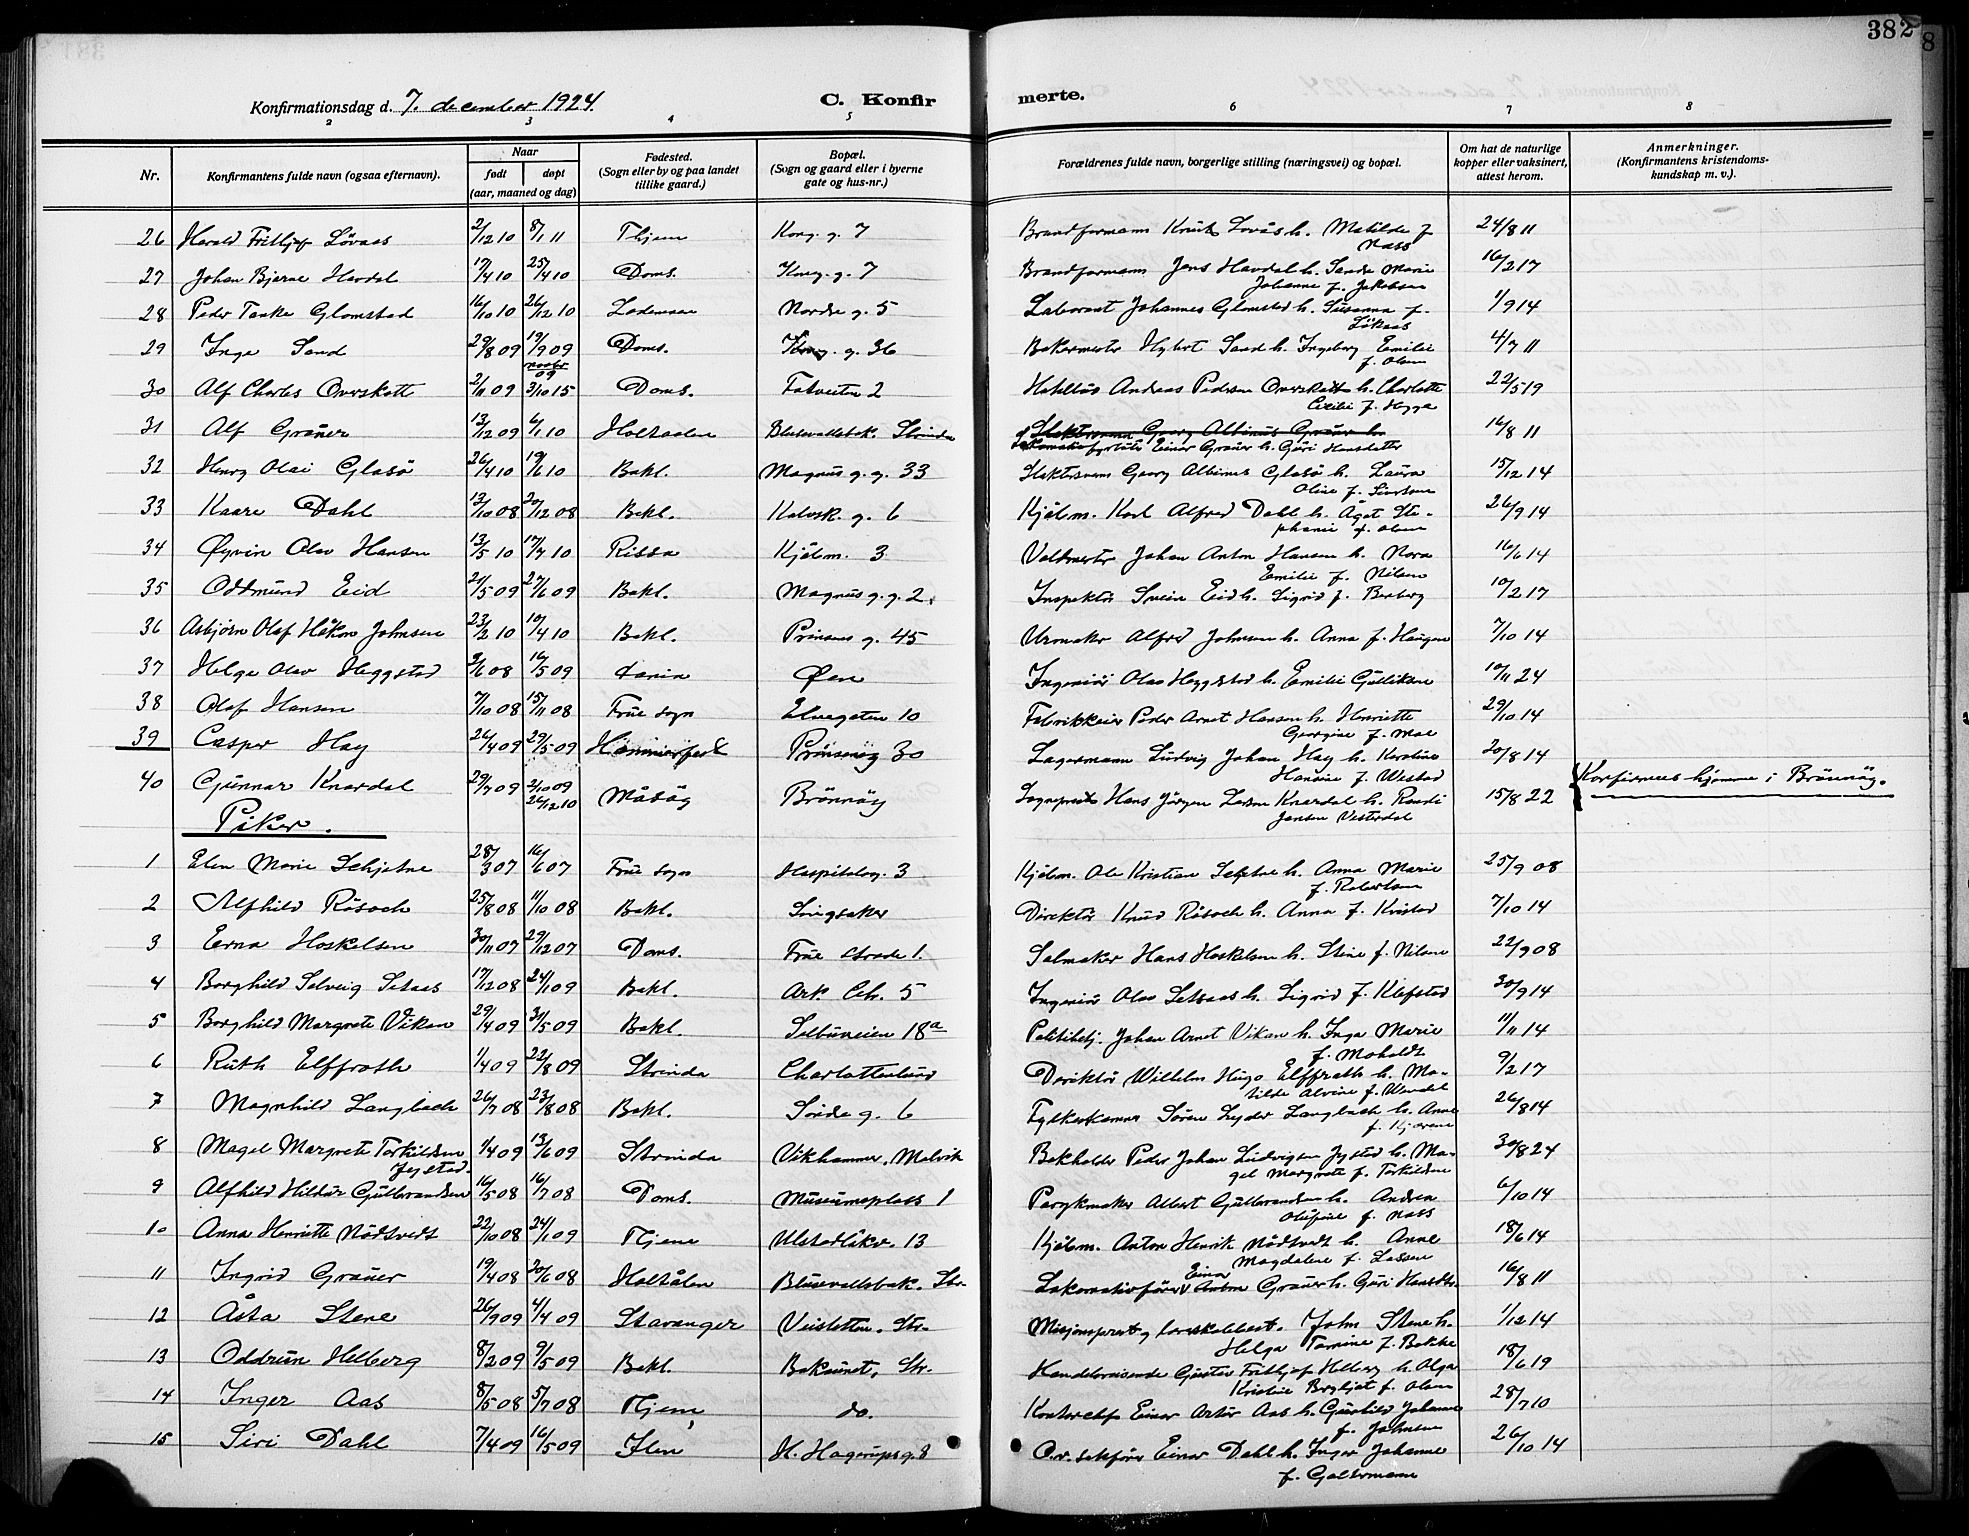 382
Konfirmationsdag d. 7. december 1924.
C. Konfirmerte.
2 3 4 5 6 7 8
Nr.
Konfirmantens fulde navn (ogsaa efternavn).
Naar
født døpt
(aar, maaned og dag)
Fødested.
(Sogn eller by og paa landet
tillike gaard.)
Bopæl.
(Sogn og gaard eller i byerne
gate og hus-nr.)
Forældrenes fulde navn, borgerlige stilling (næringsvei) og bopæl.
Om hat de naturlige
kopper eller vaksinert,
attest herom.
Anmerkninger.
(Konfirmantens kristendoms-
kundskap m. v.).
26 Harald Frithjof Løvaas 2/12 10 8/1 11 Kong. g. 7 Brandformann h. Matilde f. 24/8 11
Næss
27 Johan Bjarne Havdal 17/4 10 25/4 10 Doms. Kong. g. 7 Brandformann Jens Havdal h. Marie 16/2 17
Johanne f. Jakobsen
28 Peder Glomstad 16/10 10 26/12 10 Lademoen Nordre g. 5 Laborant Johannes Glomstad h. Susanna f. 1/9 14
Løkaas
29 Inge Sand 29/8 09 19/9 09 Doms. Kong. g. 36 Bakermester Sand h. Ingeborg Emilie 4/7 11
f. Olsen
30 Alf Charles Overskott 2/11 09 3/10 15 Doms. 2 Andreas Pedersen Overskott h. Charlotte 22/5 19
Cecilie f. Hegge
31 Alf Graner 13/12 09 6/1 10 Holtaalen Strinda 16/8 11
Einar Graner h. Guri Hansdatter
32 Henry Olai Glasø 26/4 10 19/6 10 Bakl. Magnus g. g. 33 Georg Albinus Glasø h. Laura 15/12 14
Oline f.
33 Kaare Dahl 13/10 08 20/12 08 Bakl. Kalvsk. g. 6 Kjøbm. Karl Alfred Dahl h. Ågot Ste- 26/9 14
phanie f. Olsen
34 Øyvin Olav Hansen 13/5 10 17/7 10 Rissa Kjøbm. 3 Johan Anton Hansen h. Nora 16/6 14
Emilie f. Nilsen
35 Oddmund Eid 21/5 09 27/6 09 Bakl. Magnus g. g. 2. Inspektør Svein Eid h. Sigrid f. Berberg 10/2 17
36 Asbjørn Olaf Håkon Johnsen 23/2 10 10/4 10 Bakl. Prinsens g. 45 Urmaker Alfred Johnsen h. Anna f. Haugen 7/10 14
37 Helge Olav Heggstad 16/5 09 Øen Ingeniør Olav Heggstad h. Emilie Gulliksen 10/11 24
38 Olaf Hansen 7/10 08 15/11 08 Frue sogn Elvegaten 10 Fabrikkeier Peder Arnt Hansen h. Henriette 29/10 14
Georgine f. Moe
39 Casper Hay 26/4 09 29/5 09 Hammerfest Prinsensg 30 Lagermann Ludvig Johan Hay h. Karoline 20/8 14
Hansine f. Westad
40 Gunnar Knardal 29/7 09 2/10 09 Måsøy Brønnøy Sogneprest Hans Jørgen Larsen Knardal h. Randi 15/8 22 Konfirmeres hjemme i Brønnøy.
26/12 10 Jensen Vesterdal
Piker.
1 Elen Marie Schjetne 28/3 07 16/6 07 Frue sogn Hospitalsg. 3 Kjøbm. Ole Kristian Schjetne h. Anna Marie 25/9 08
f. Robertsen
2 Alfhild Røsoch 25/8 08 11/10 08 Bakl. Singsaker Direktør Knud Røsoch h. Anna f. Kristad 7/10 14
3 Erna Hoskelsen 30/11 07 29/12 07 Doms. Frue strade 1. Salmaker Hans Hoskelsen h. Stine f. Nilsen 22/9 08
4 Borghild Solveig Setsaas 17/12 08 24/1 09 Bakl. Ark. Chr. 5 Ingeniør Olav Setsaas h. Sigrid f. Klefstad 30/9 14
5 Borghild Margrete Vikan 29/4 09 31/5 09 Bakl. Selbuveien 18a Politibetj. Johan Arnt Vikan h. Inga Marie 11/11 14
f. Moholdt
6 Ruth Elffroth 1/4 09 22/8 09 Strinda Charlottenlund Direktør Wilhelm Hugo Elffrath h. Ma- 9/2 17
tilde Alvine f. Wendel
7 Magnhild Langbach 26/7 08 23/8 08 Bakl. Søndre g. 6 Søren Langbach h. Anne 26/8 14
8 Magel Margrete Torkildsen 1/4 09 13/6 09 Strinda Vikhammer, Malvik Bokholder Peder Johan Ludvigsen Jystad h. Ma- 30/8 24
Jystad. gel Margrete f. Torkildsen
9 Alfhild Hildur Gulbrandsen 16/5 08 16/7 08 Doms. Museumsplass 1 Parykmaker Albert Gulbrandsen h. Andrea 6/10 14
Olufine f. Næss
10 Anna Henriette Nødtvedt 22/10 08 24/1 09 Ulstadløkv. 13 Kjøbm. Anton Henrik Nødtvedt h. Anne 18/6 14
Magdalene f. Lassen
11 Ingrid Graner 19/4 08 20/6 08 Holtålen Str. Lokomotivfører Einar Anton Graner h. Guri Hansdtr. 16/8 11
12 Åsta Stene 26/9 09 4/4 09 Stavanger Veisletten. Str. Misjonsprest John Stene h. 1/12 14
Helga Tomine f. Bakke
13 Oddrun Helberg 8/2 09 9/5 09 Bakl. Bakaunet, Str. Handelsreisende Gustav Frithjof Helberg h. Olga 18/6 19
Kristine f. Olsen
14 Inger Aas 8/5 08 5/7 08 do. Kontorchef Einar Artur Aas h. Gunhild Johanne 28/7 10
f. Johnsen
15 Siri Dahl 7/4 09 16/5 09 Ilen H. Hagerupsg. 8 O.r. sakfører Einar Dahl h. Inger Johanne 26/10 14